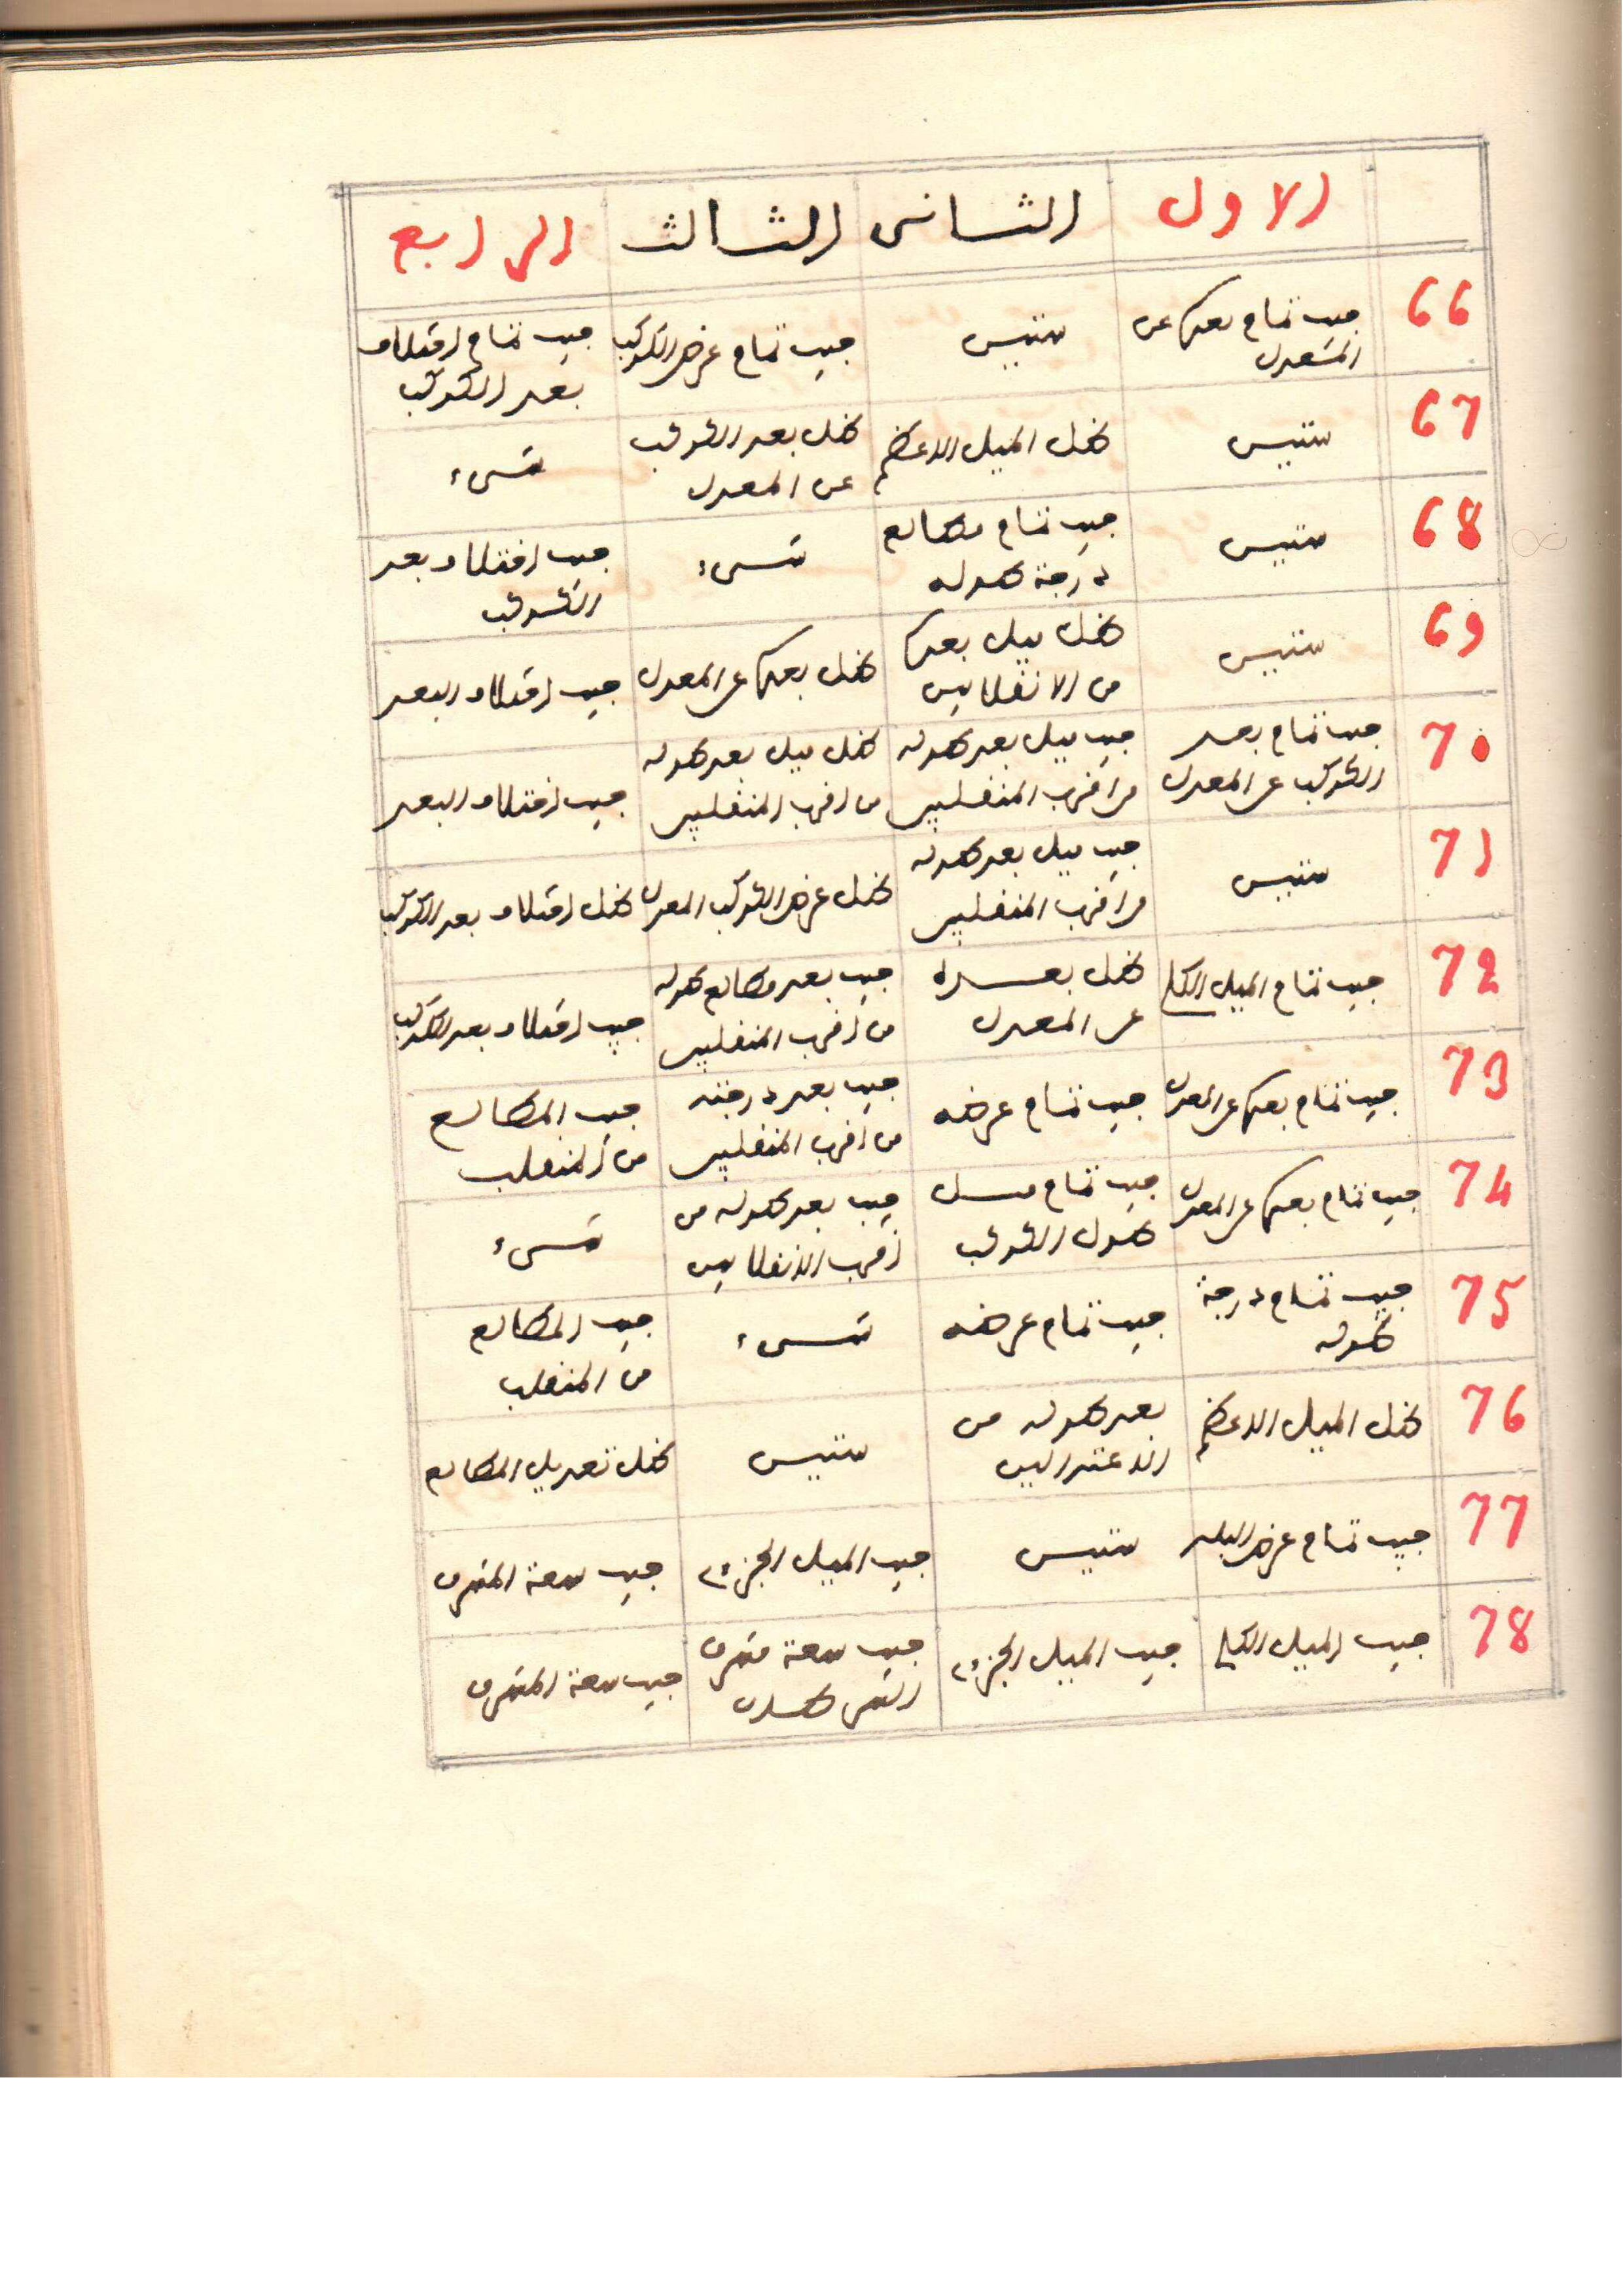 الاول الثاني الثالث الرابع
66 جيب تمام بعدها عن المعدل ستين جيب تمام عرض الكوكب جيب تمام اختلاف بعد الكوكب
67 ستين ظل الميل الاعظم ظل بعد الكوكب عن المعدل شيء
68 ستين جيب تمام مطالع درجة طوله شيء جيب اختلاف بعد الكوكب
69 ستين ظل ميل بعدها من الانقلابين ظل بعدها عن المعدل جيب اختلاف البعد
70 جيب تمام بعد الكوكب عن المعدل جيب ميل بعد طوله من اقرب المنقلبين ظل ميل بعد طوله من اقرب المنقلبين جيب اختلاف البعد
71 ستين جيب ميل بعد طوله من اقرب المنقلبين ظل عرض الكوكب المعدل ظل اختلاف بعد الكوكب
72 جيب تمام الميل الكلي ظل بعده عن المعدل جيب بعد مطالع طوله من اقرب المنقلبين جيب اختلاف بعد الكوكب
73 جيب تمام بعدها عن المعدل جيب تمام عرضه جيب بعد درجته من اقرب المنقلبين جيب المطالع من المنقلب
74 جيب تمام بعدها عن المعدل جيب تمام ميل طول الكوكب جيب بعد طوله من اقرب الانقلابين شيء
75 جيب تمام درجة طوله جيب تمام عرضه شيء جيب المطالع من المنقلب
76 ظل الميل الاعظم بعد طوله من الاعتدالين ستين ظل تعديل المطالع
77 جيب تمام عرض البلد ستين جيب الميل الجزءي جيب سعة المشرق
78 جيب الميل الكلي جيب الميل الجزءي جيب سعة مشرق جيب سعة المشرق